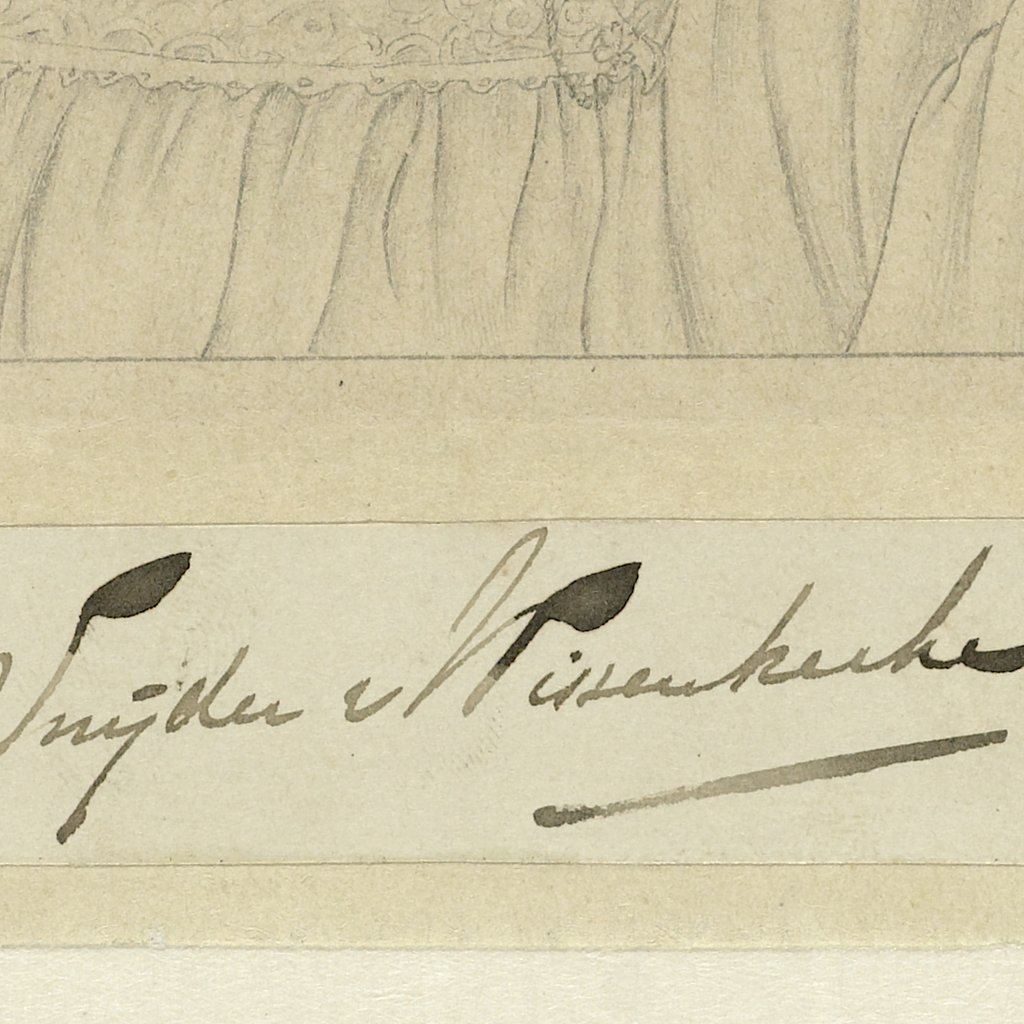 Snijder v Wissenkerke